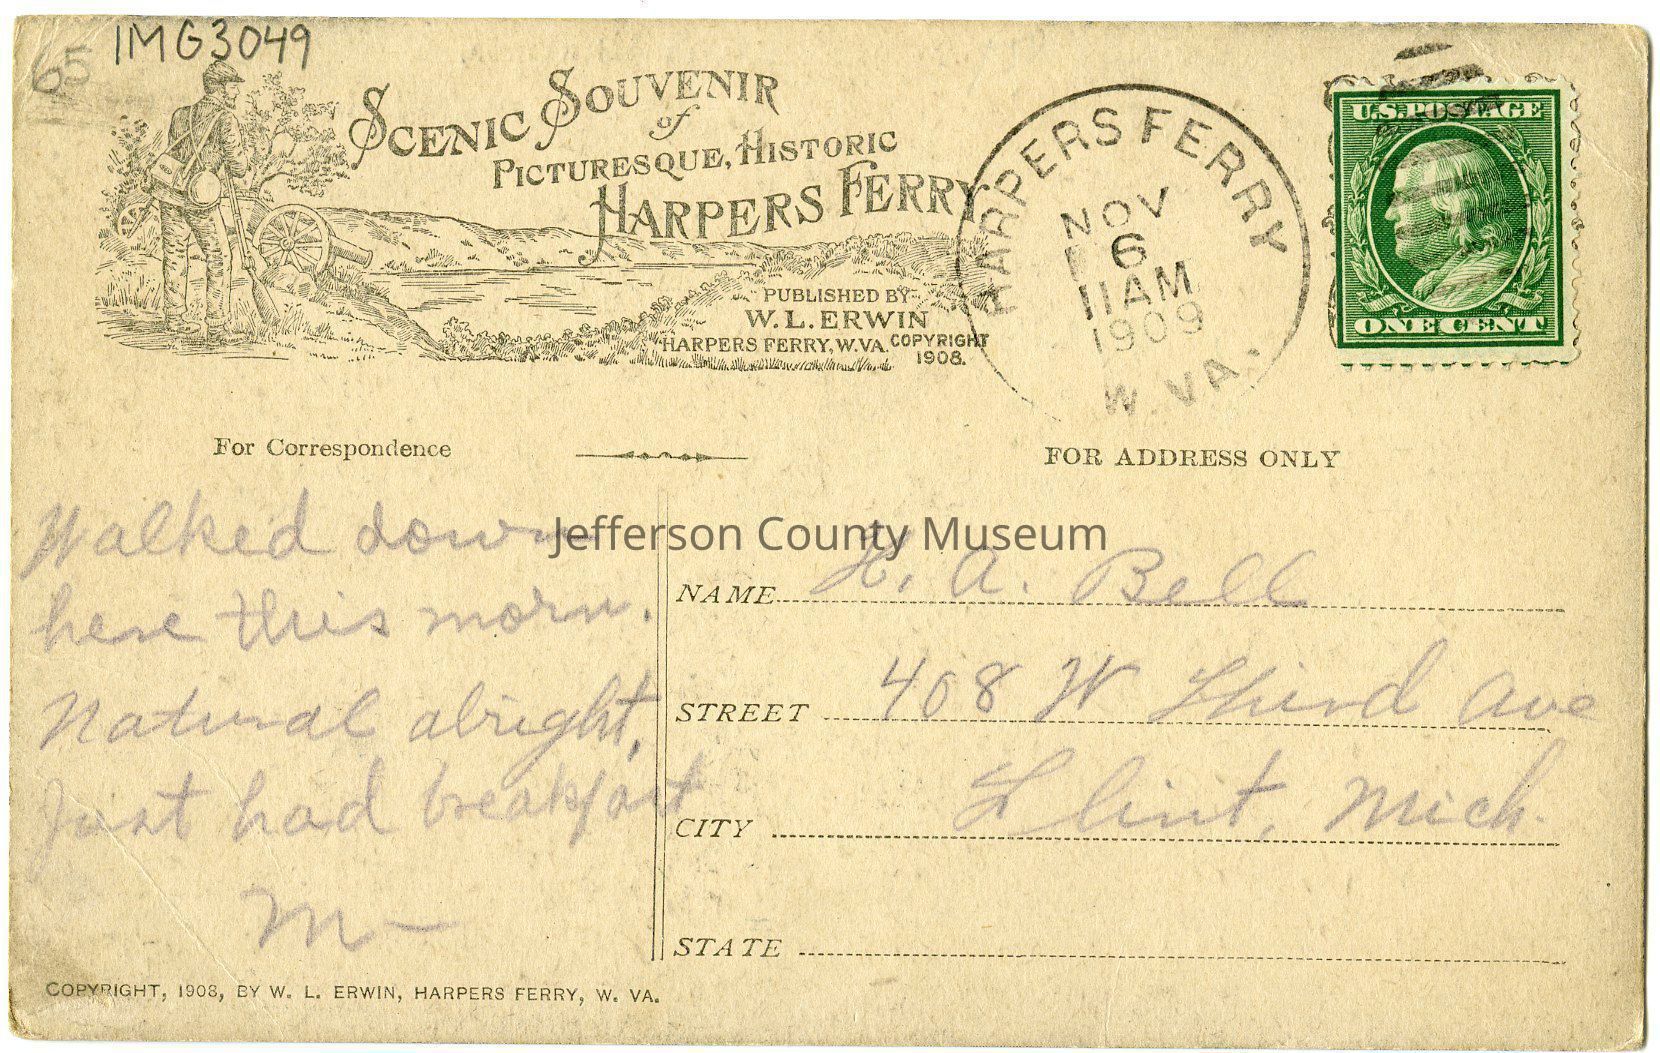 IMG3049
65
SCENIC SOUVENIR
of
PICTURESQUE, HISTORIC
HARPERS FERRY
PUBLISHED BY
W. L. ERWIN
HARPERS FERRY, W. VA. COPYRIGHT
1908.
HARPERS FERRY
NOV
6
11AM
1909
W. VA.
U.S. POSTAGE
ONE CENT
For Correspondence
FOR ADDRESS ONLY
Jefferson County Museum
Walked down
here this morn.
Natural alright,
Just had breakfast
M—
NAME H. A. Bell
STREET 408 W Third Ave
CITY Flint, Mich.
STATE
COPYRIGHT, 1908, BY W. L. ERWIN, HARPERS FERRY, W. VA.